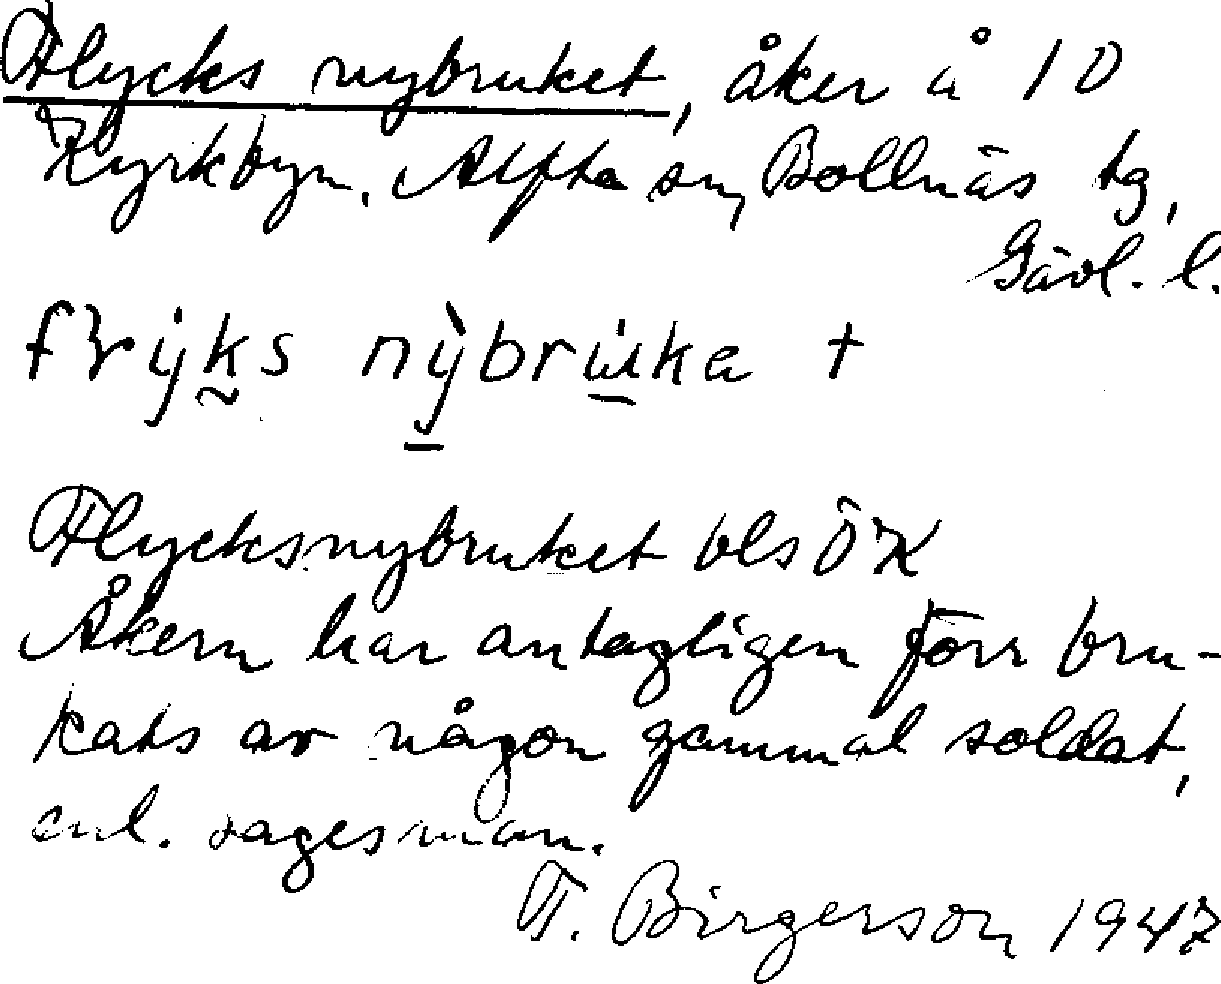 Flycks nybruket, åker å 10
Kyrkbyn. Alfta sn, Bollnäs tg,
Gävl. l.
nỳbru̇ka +
Flycksnybruket bls ÖK
Åkern har antagligen förr bru-
kats av någon gammal soldat,
enl. sagesman.
T. Birgerson 1947